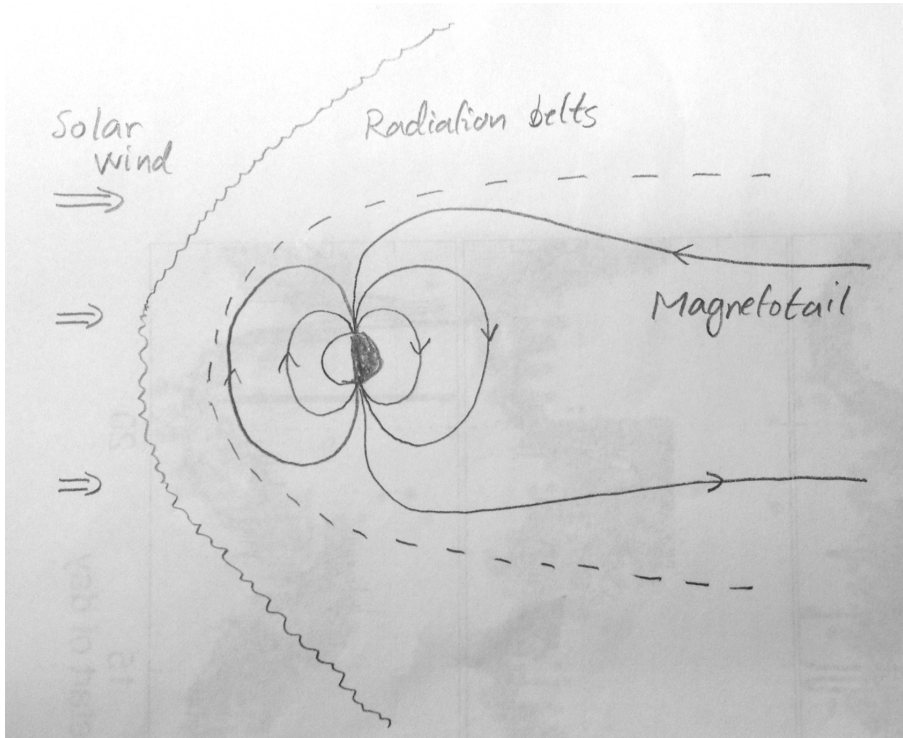 Solar
wind
Radiation belts
Magnetotail
15